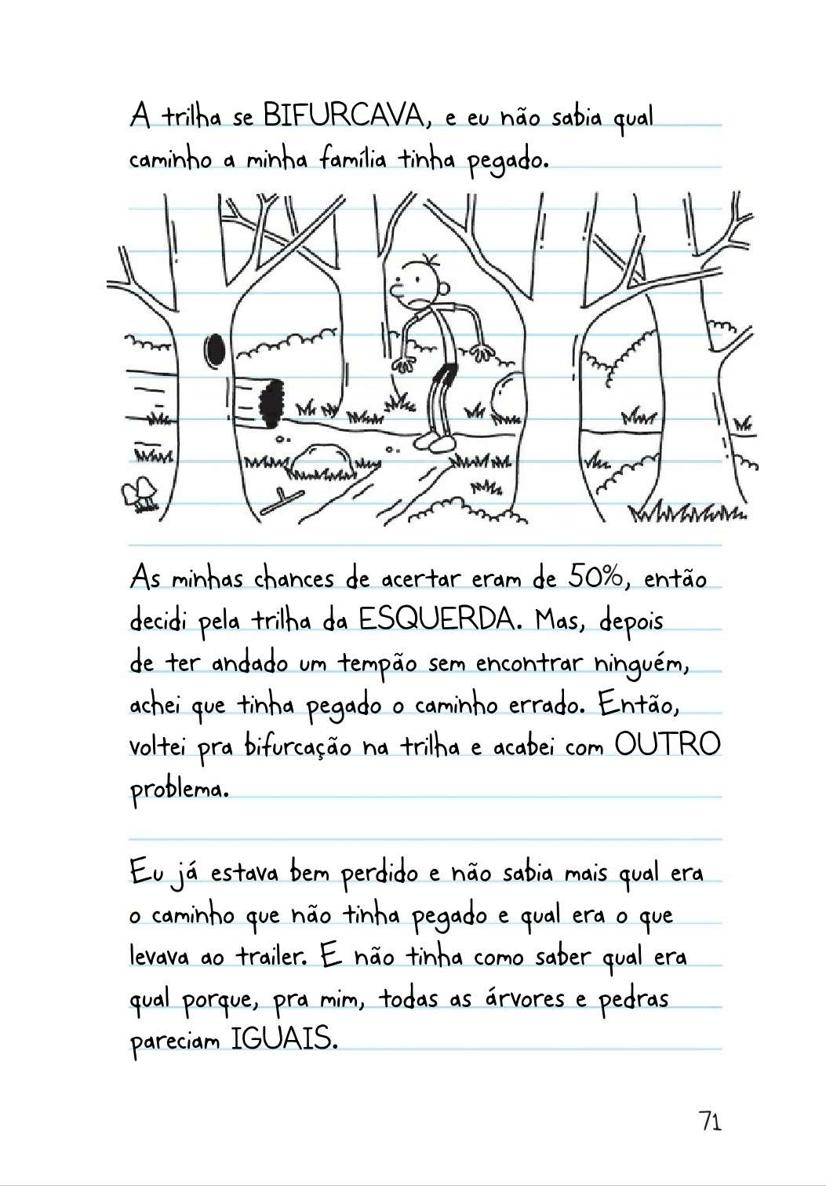 A trilha se BIFURCAVA, e eu não sabia qual
caminho a minha família tinha pegado.
As minhas chances de acertar eram de 50%, então
decidi pela trilha da ESQUERDA. Mas, depois
de ter andado um tempão sem encontrar ninguém,
achei que tinha pegado o caminho errado. Então,
voltei pra bifurcação na trilha e acabei com OUTRO
problema.
Eu já estava bem perdido e não sabia mais qual era
o caminho que não tinha pegado e qual era o que
levava ao trailer. E não tinha como saber qual era
qual porque, pra mim, todas as árvores e pedras
pareciam IGUAIS.
71